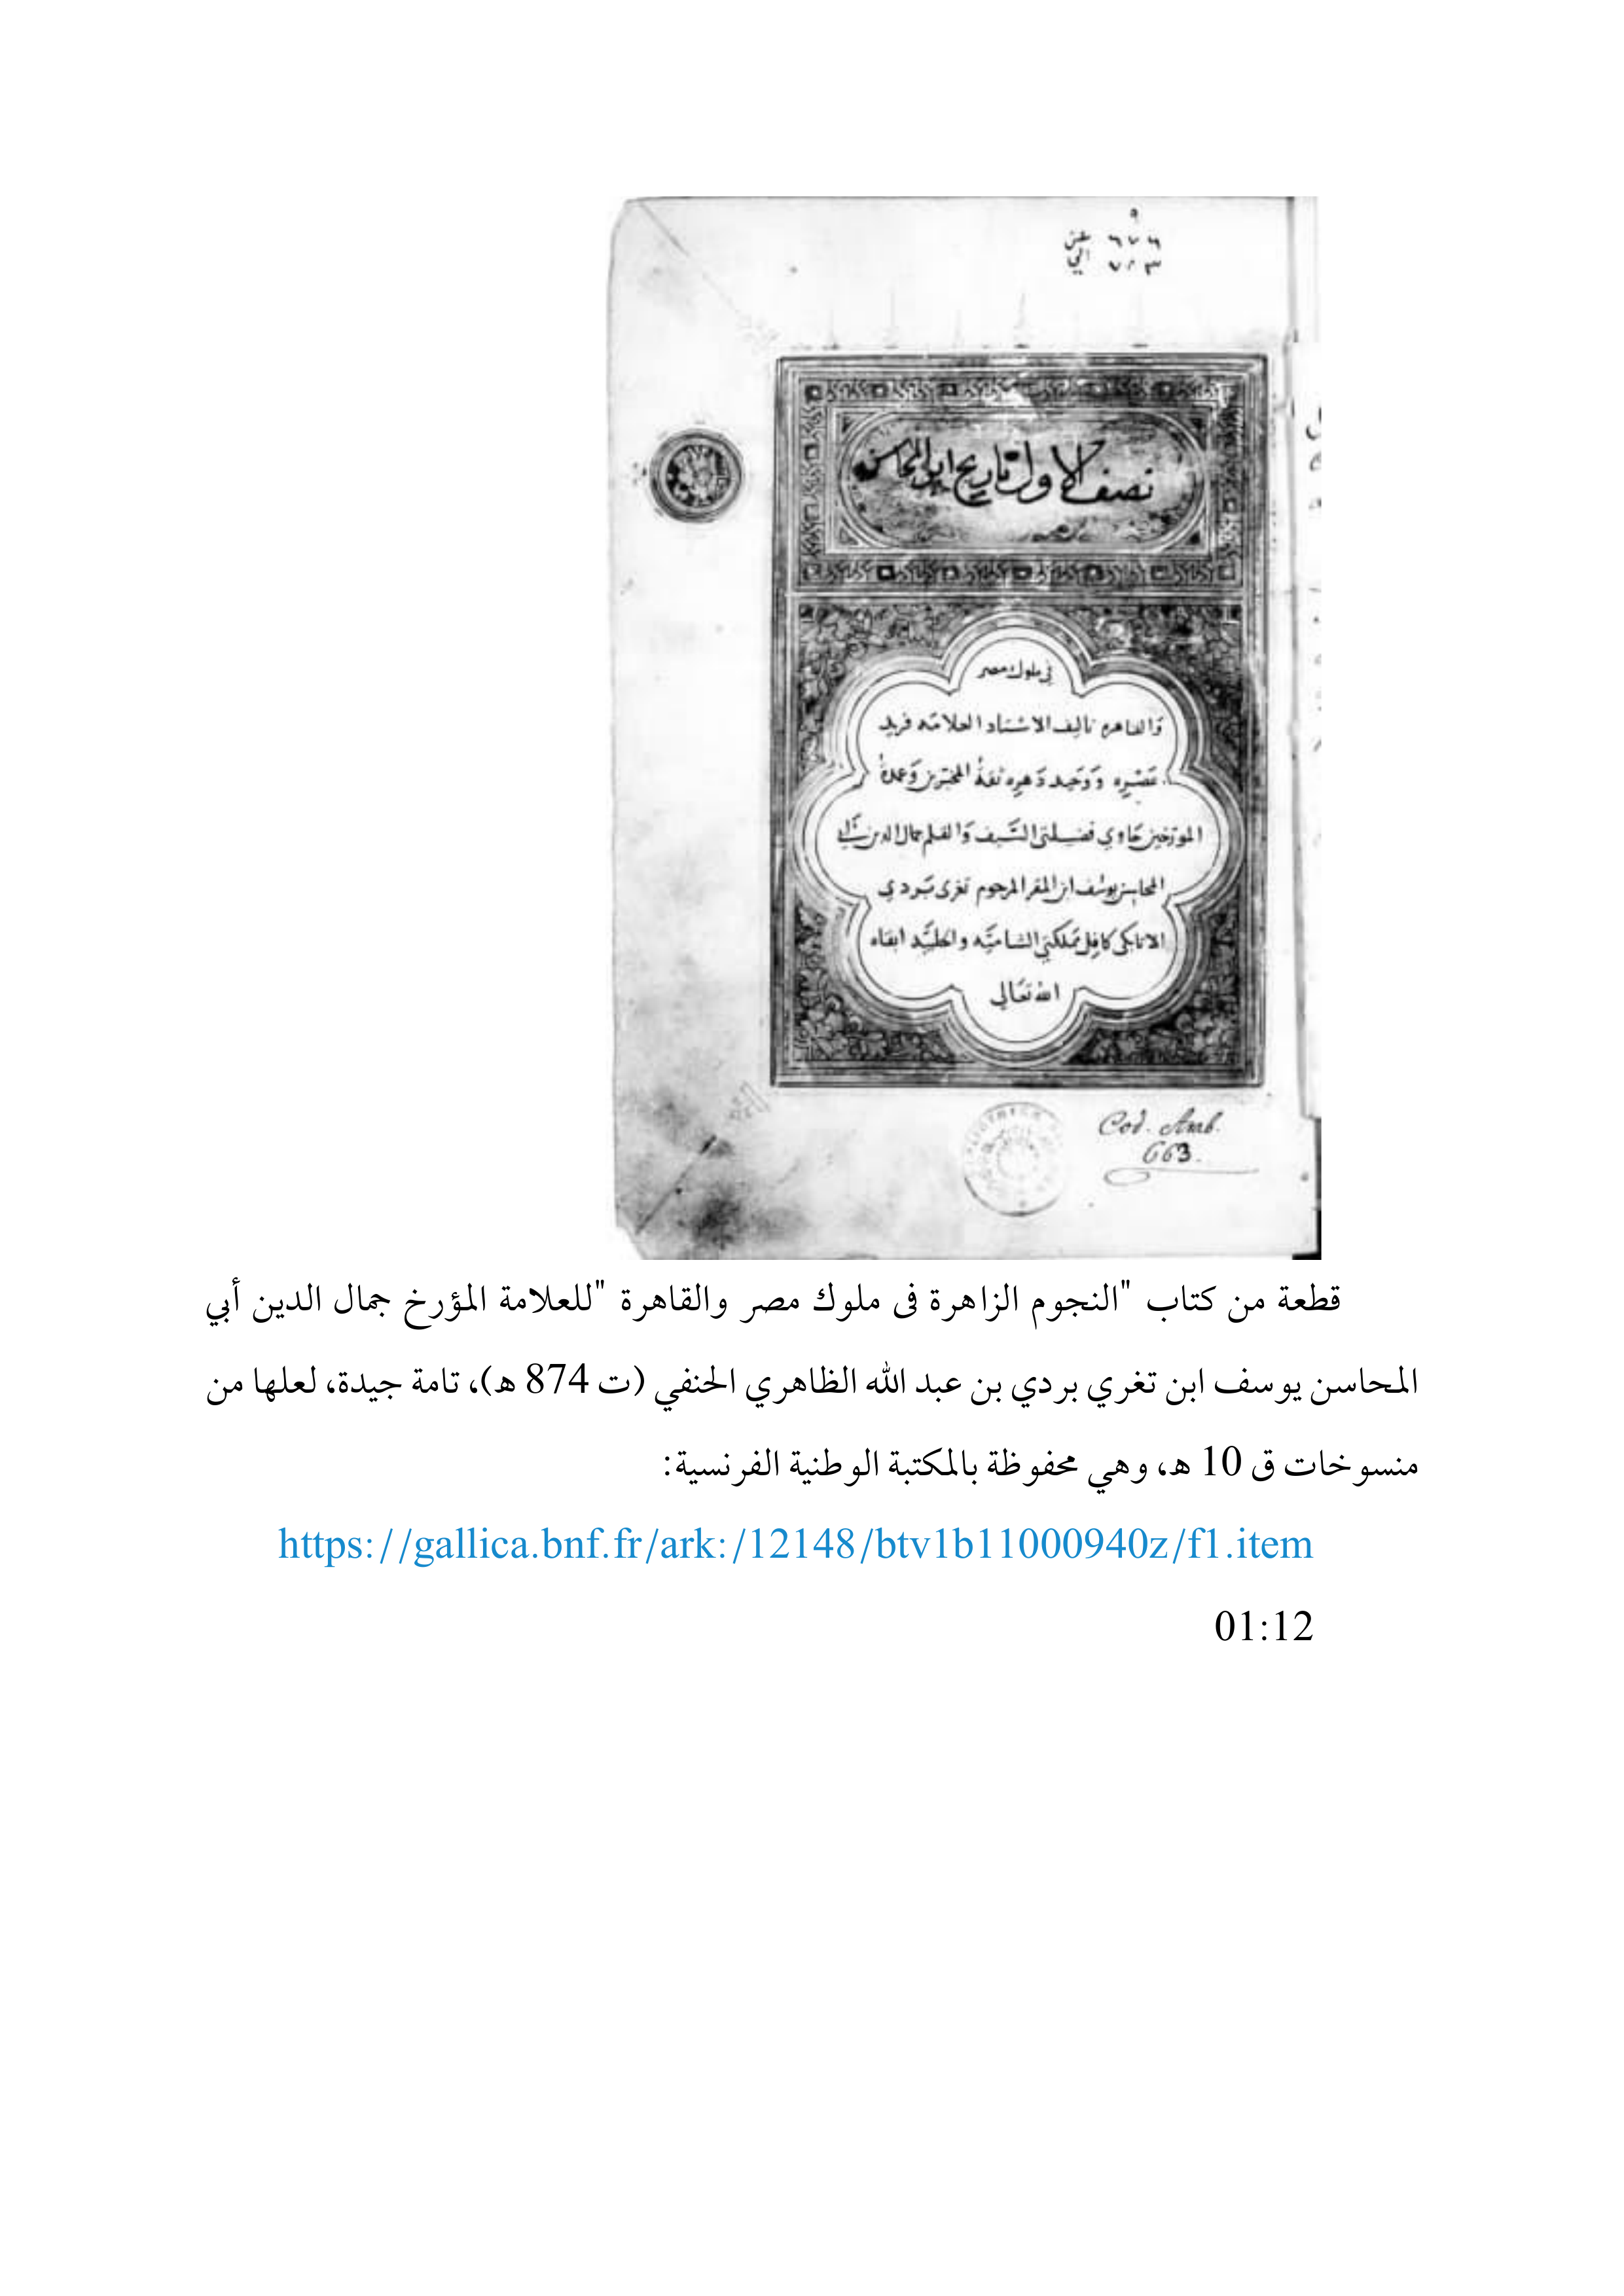 عن ٦٧٦
الي ٧٠٣
نصف الاول تاريخ ابو المحاسن
في ملوك مصر
وَالقاهره تاليف الاستاد العلامَه فريد
عَصْرِه وَوَحيد دَهرِه ثقةُ المخبرين وَعمدةُ
المورّخين حَاوي فضيلتى السَّيف وَالقلم جمال الدين ابي
المحاسن يوسُف ابن المقر المرحوم تغرى بَردي
الاتابكى كافِل مَملكتي الشاميَّه والحلبيَّه ابقاه
الله تعَالي
Cod. Arab.
663.
قطعة من كتاب "النجوم الزاهرة فى ملوك مصر والقاهرة "للعلامة المؤرخ جمال الدين أبي
المحاسن يوسف ابن تغري بردي بن عبد الله الظاهري الحنفي (ت 874 ه)، تامة جيدة، لعلها من
منسوخات ق 10 ه، وهي محفوظة بالمكتبة الوطنية الفرنسية:
https://gallica.bnf.fr/ark:/12148/btv1b11000940z/f1.item
01:12